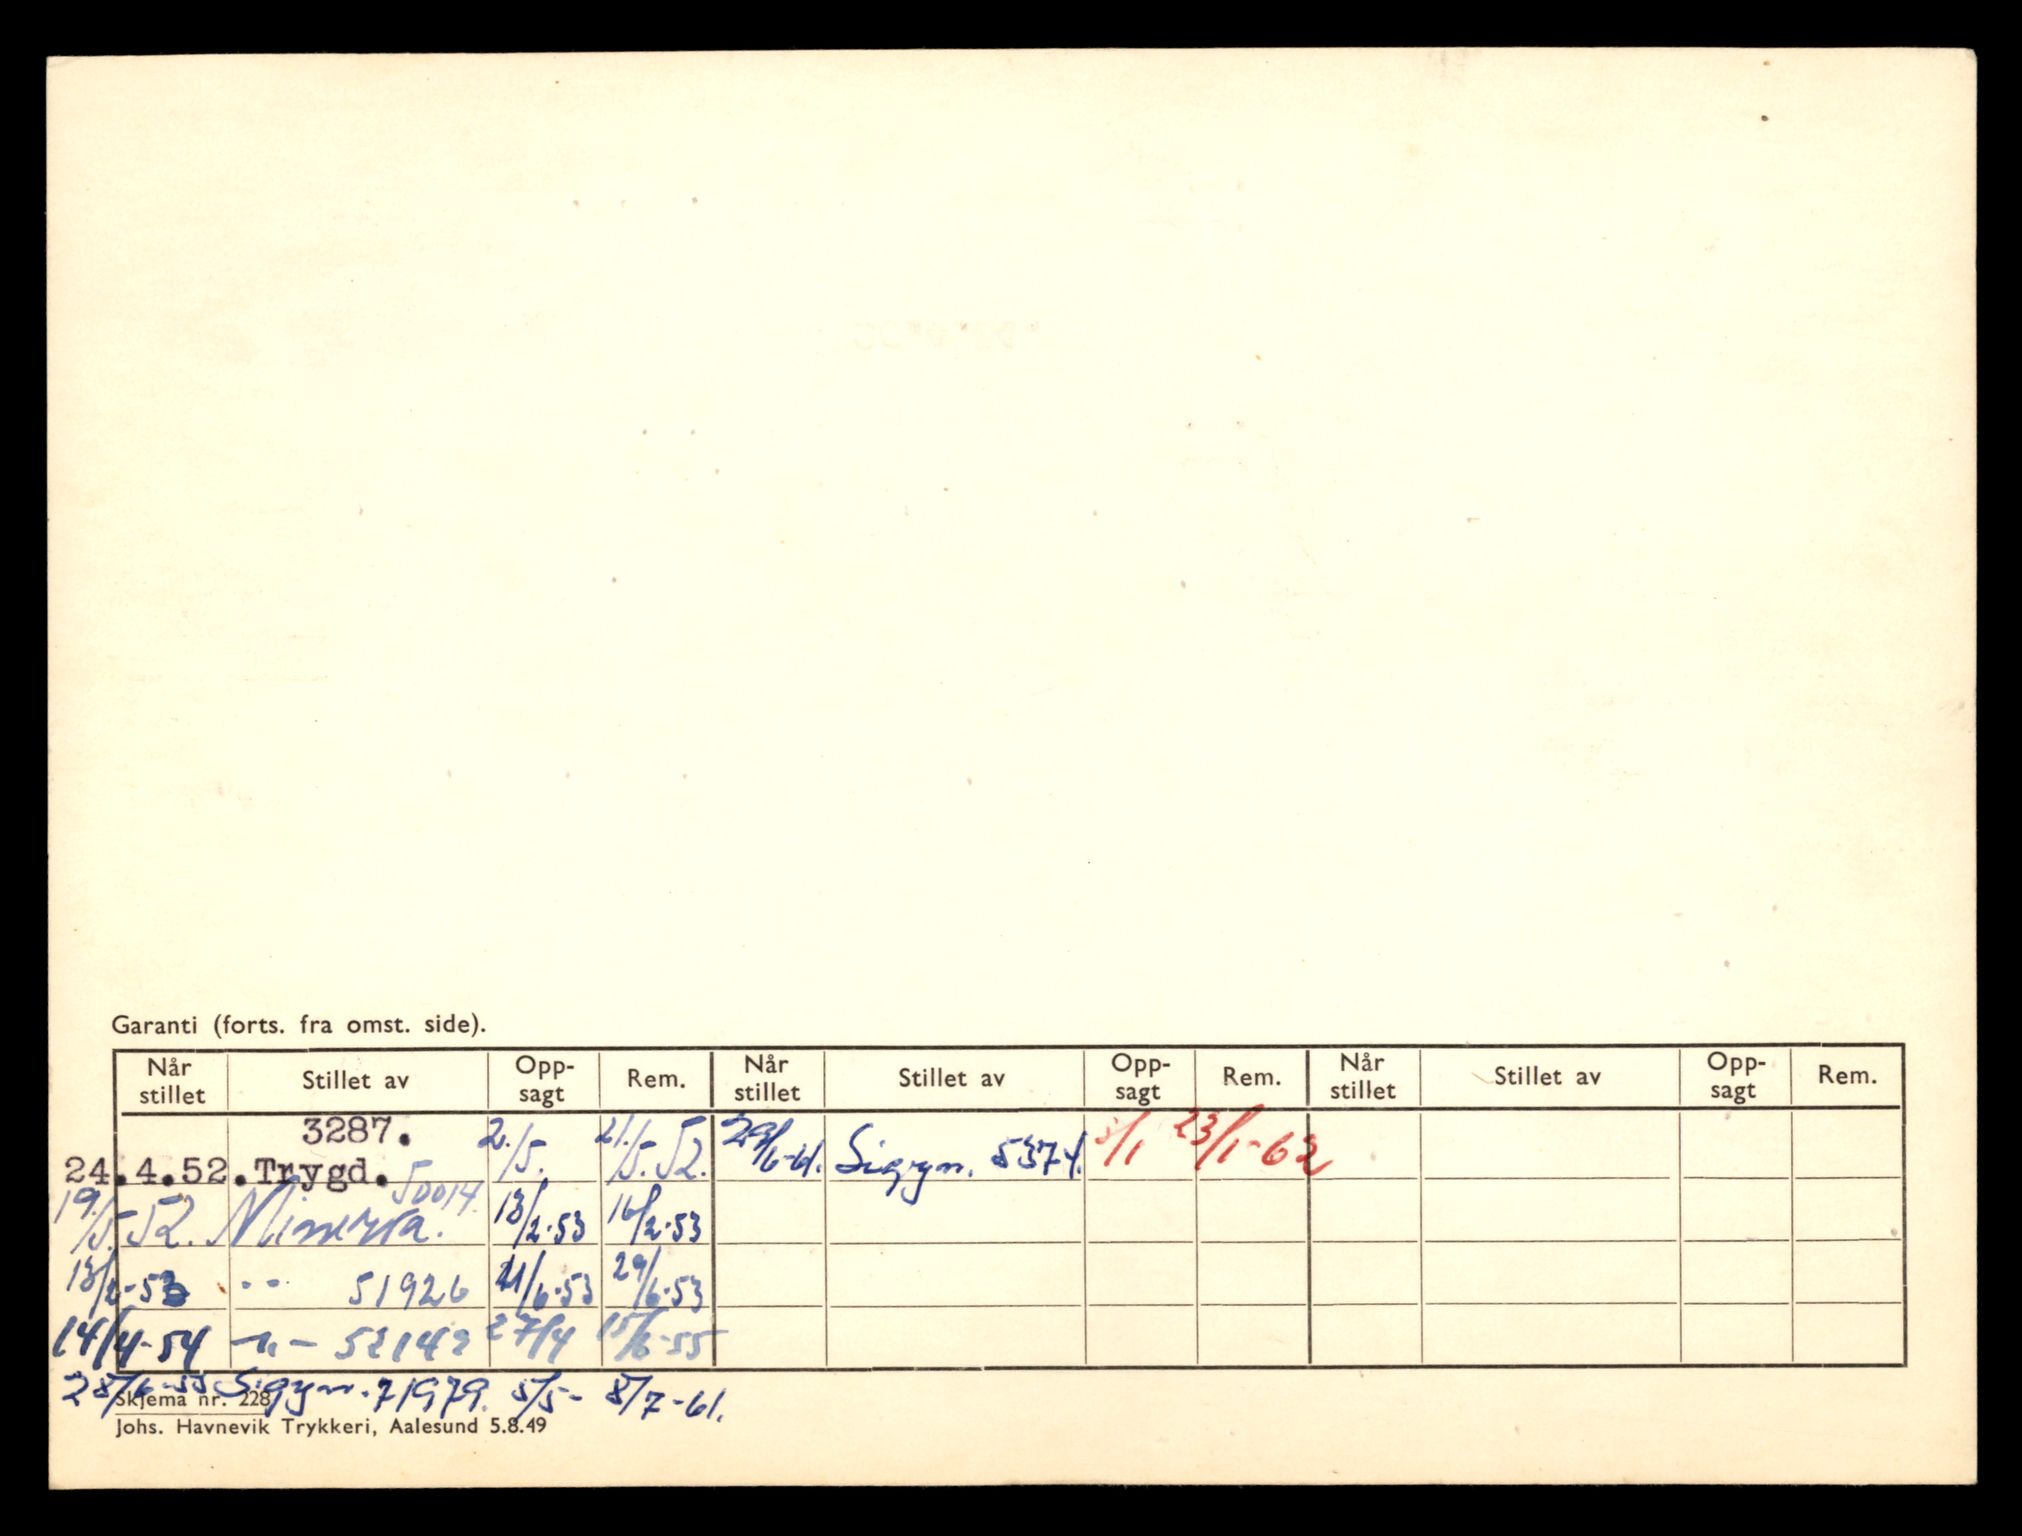 Garanti (forts. fra omst. side).
Når stillet Stillet av Opp-sagt Rem. Når stillet Stillet av Opp-sagt Rem. Når stillet Stillet av Opp-sagt Rem.
3287.
24.4.52. Trygd. 2./5. 21./5. 52. 29/6-61. Sigyn. 5374. 5/1 23/1-62
50014.
19./5. 52. Minerva. 13/2-53 16/2-53
13/2-53 -"- 51926 21/6-53 29/6-53
14/4-54 -"- 52142 27/4 15/6-55
28/6-55 Sigyn. 71979. 5/5- 8/7-61.
Skjema nr. 228
Johs. Havnevik Trykkeri, Aalesund 5.8.49